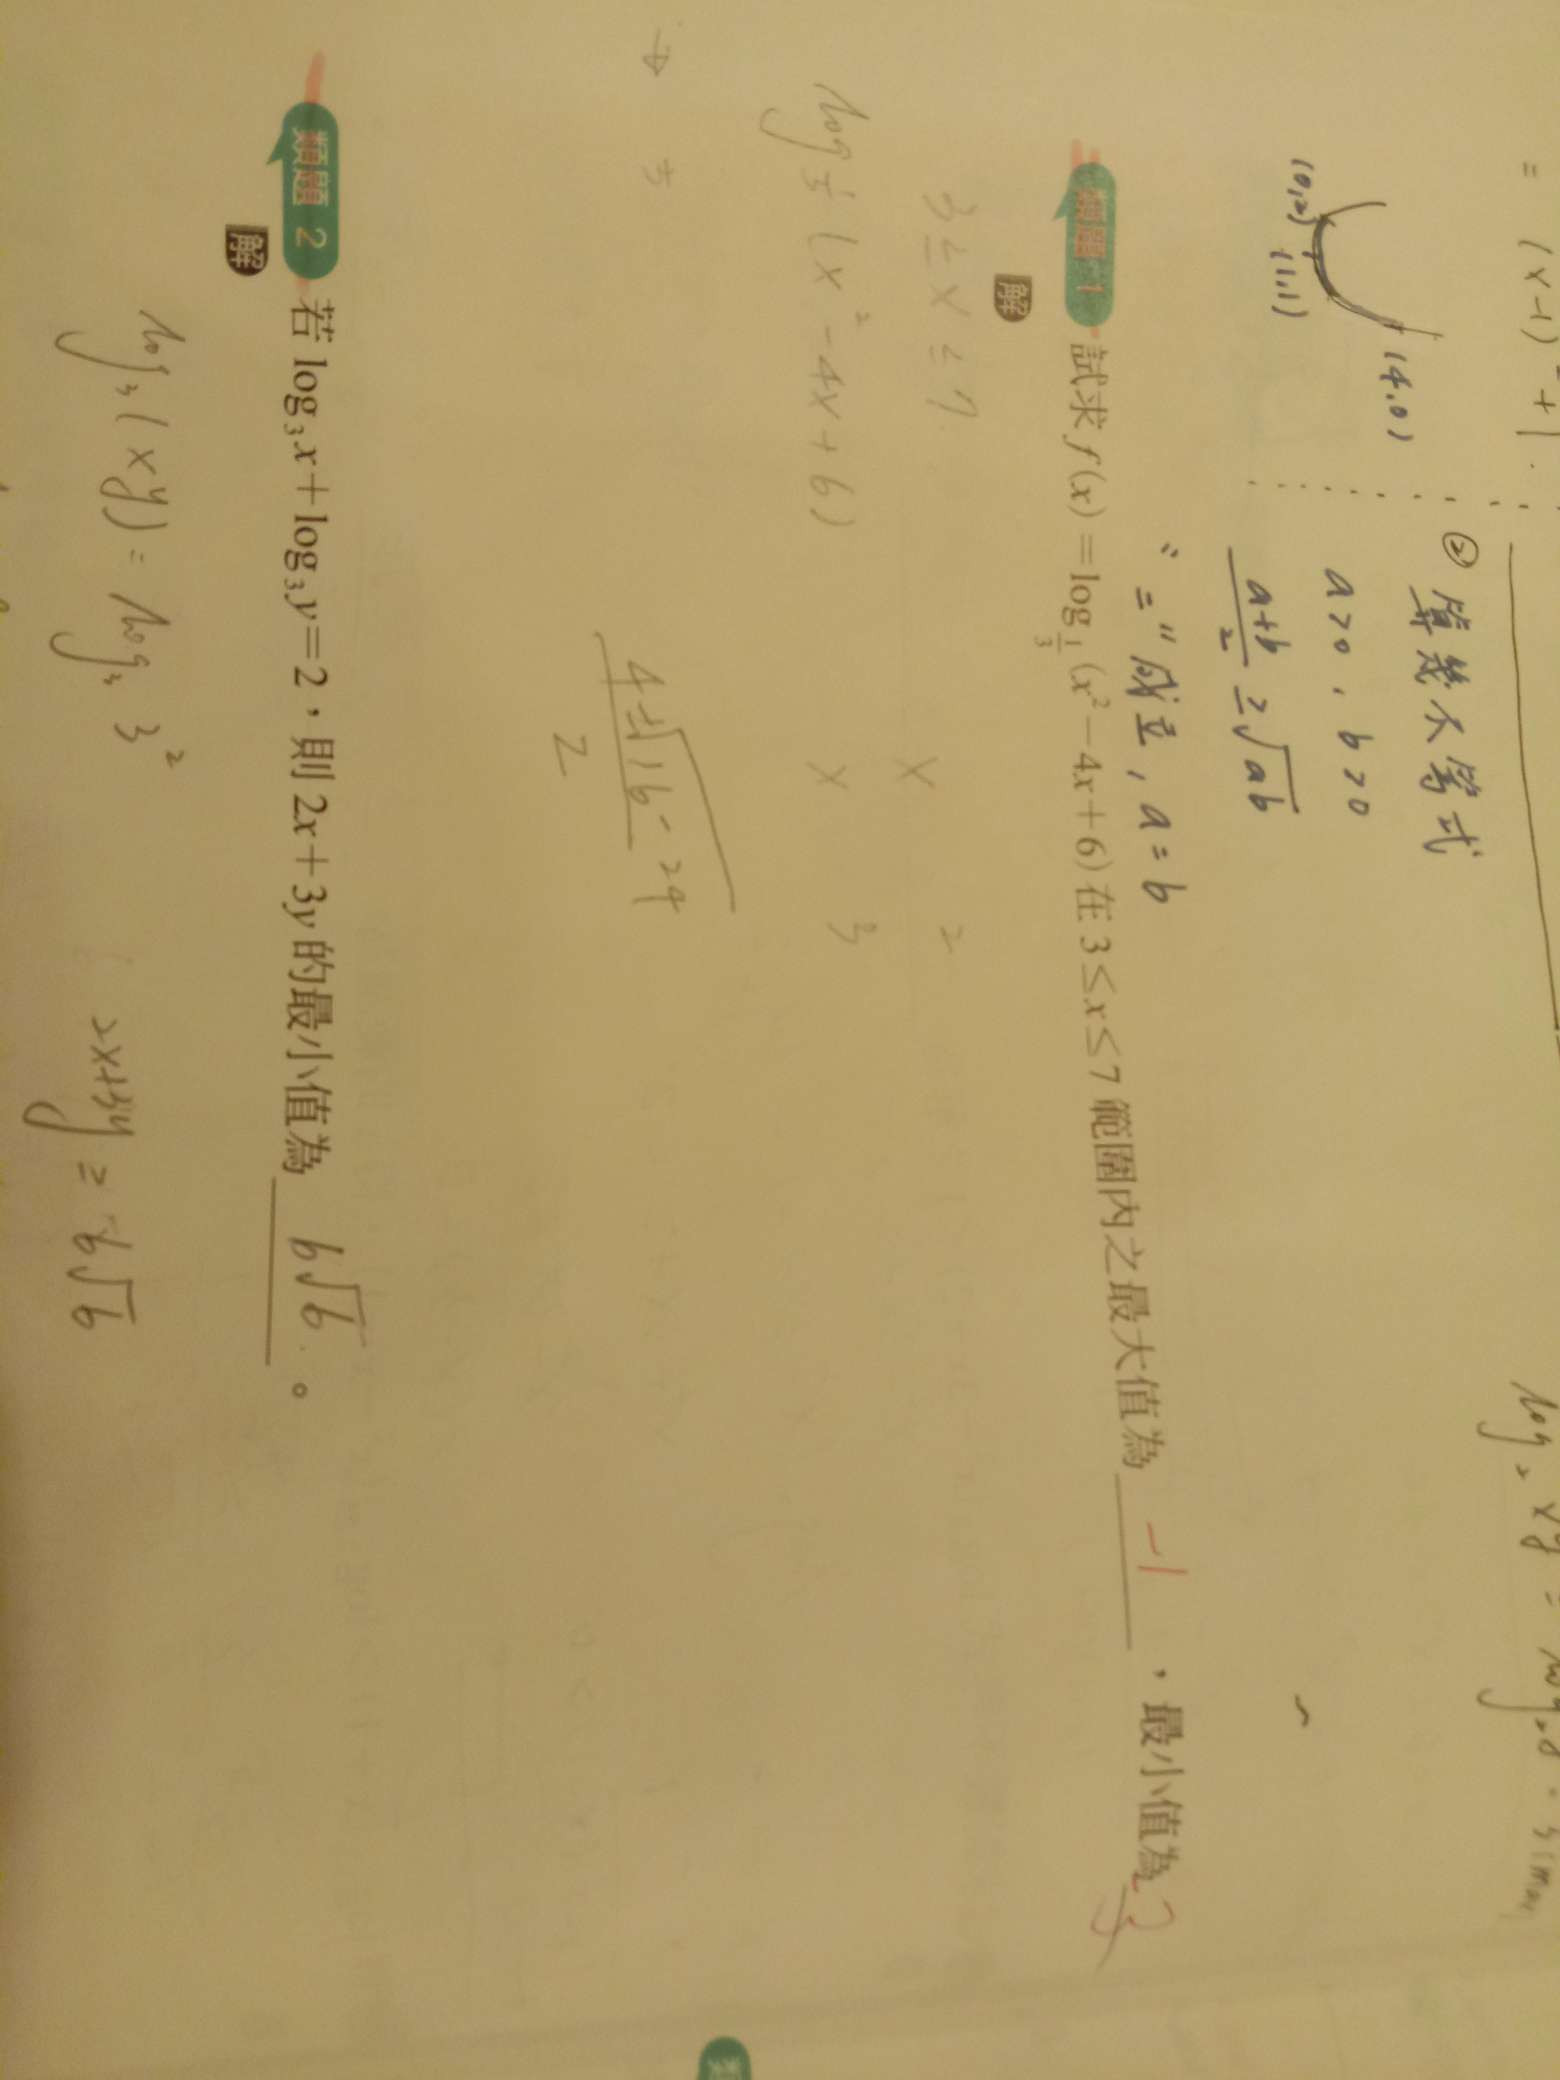 = (x-1)² + 1
(0,2)
(1,1)
(4,0)
② 算幾不等式
a>0, b>0
a+b/2 ≥ √ab
"="成立, a=b
類題 1 試求 f(x)=log_{1/3}(x²−4x+6) 在 3≤x≤7 範圍內之最大值為 -1 ,最小值為 -3
解
3 ≤ x ≤ 7
log_{1/3} (x² - 4x + 6)
x 2
x 3
4±√16-24
2
類題 2 若 log₃x+log₃y=2,則 2x+3y 的最小值為 6√6 。
解
log₃(xy) = log₃ 3²
2x+3y ≥ 6√6